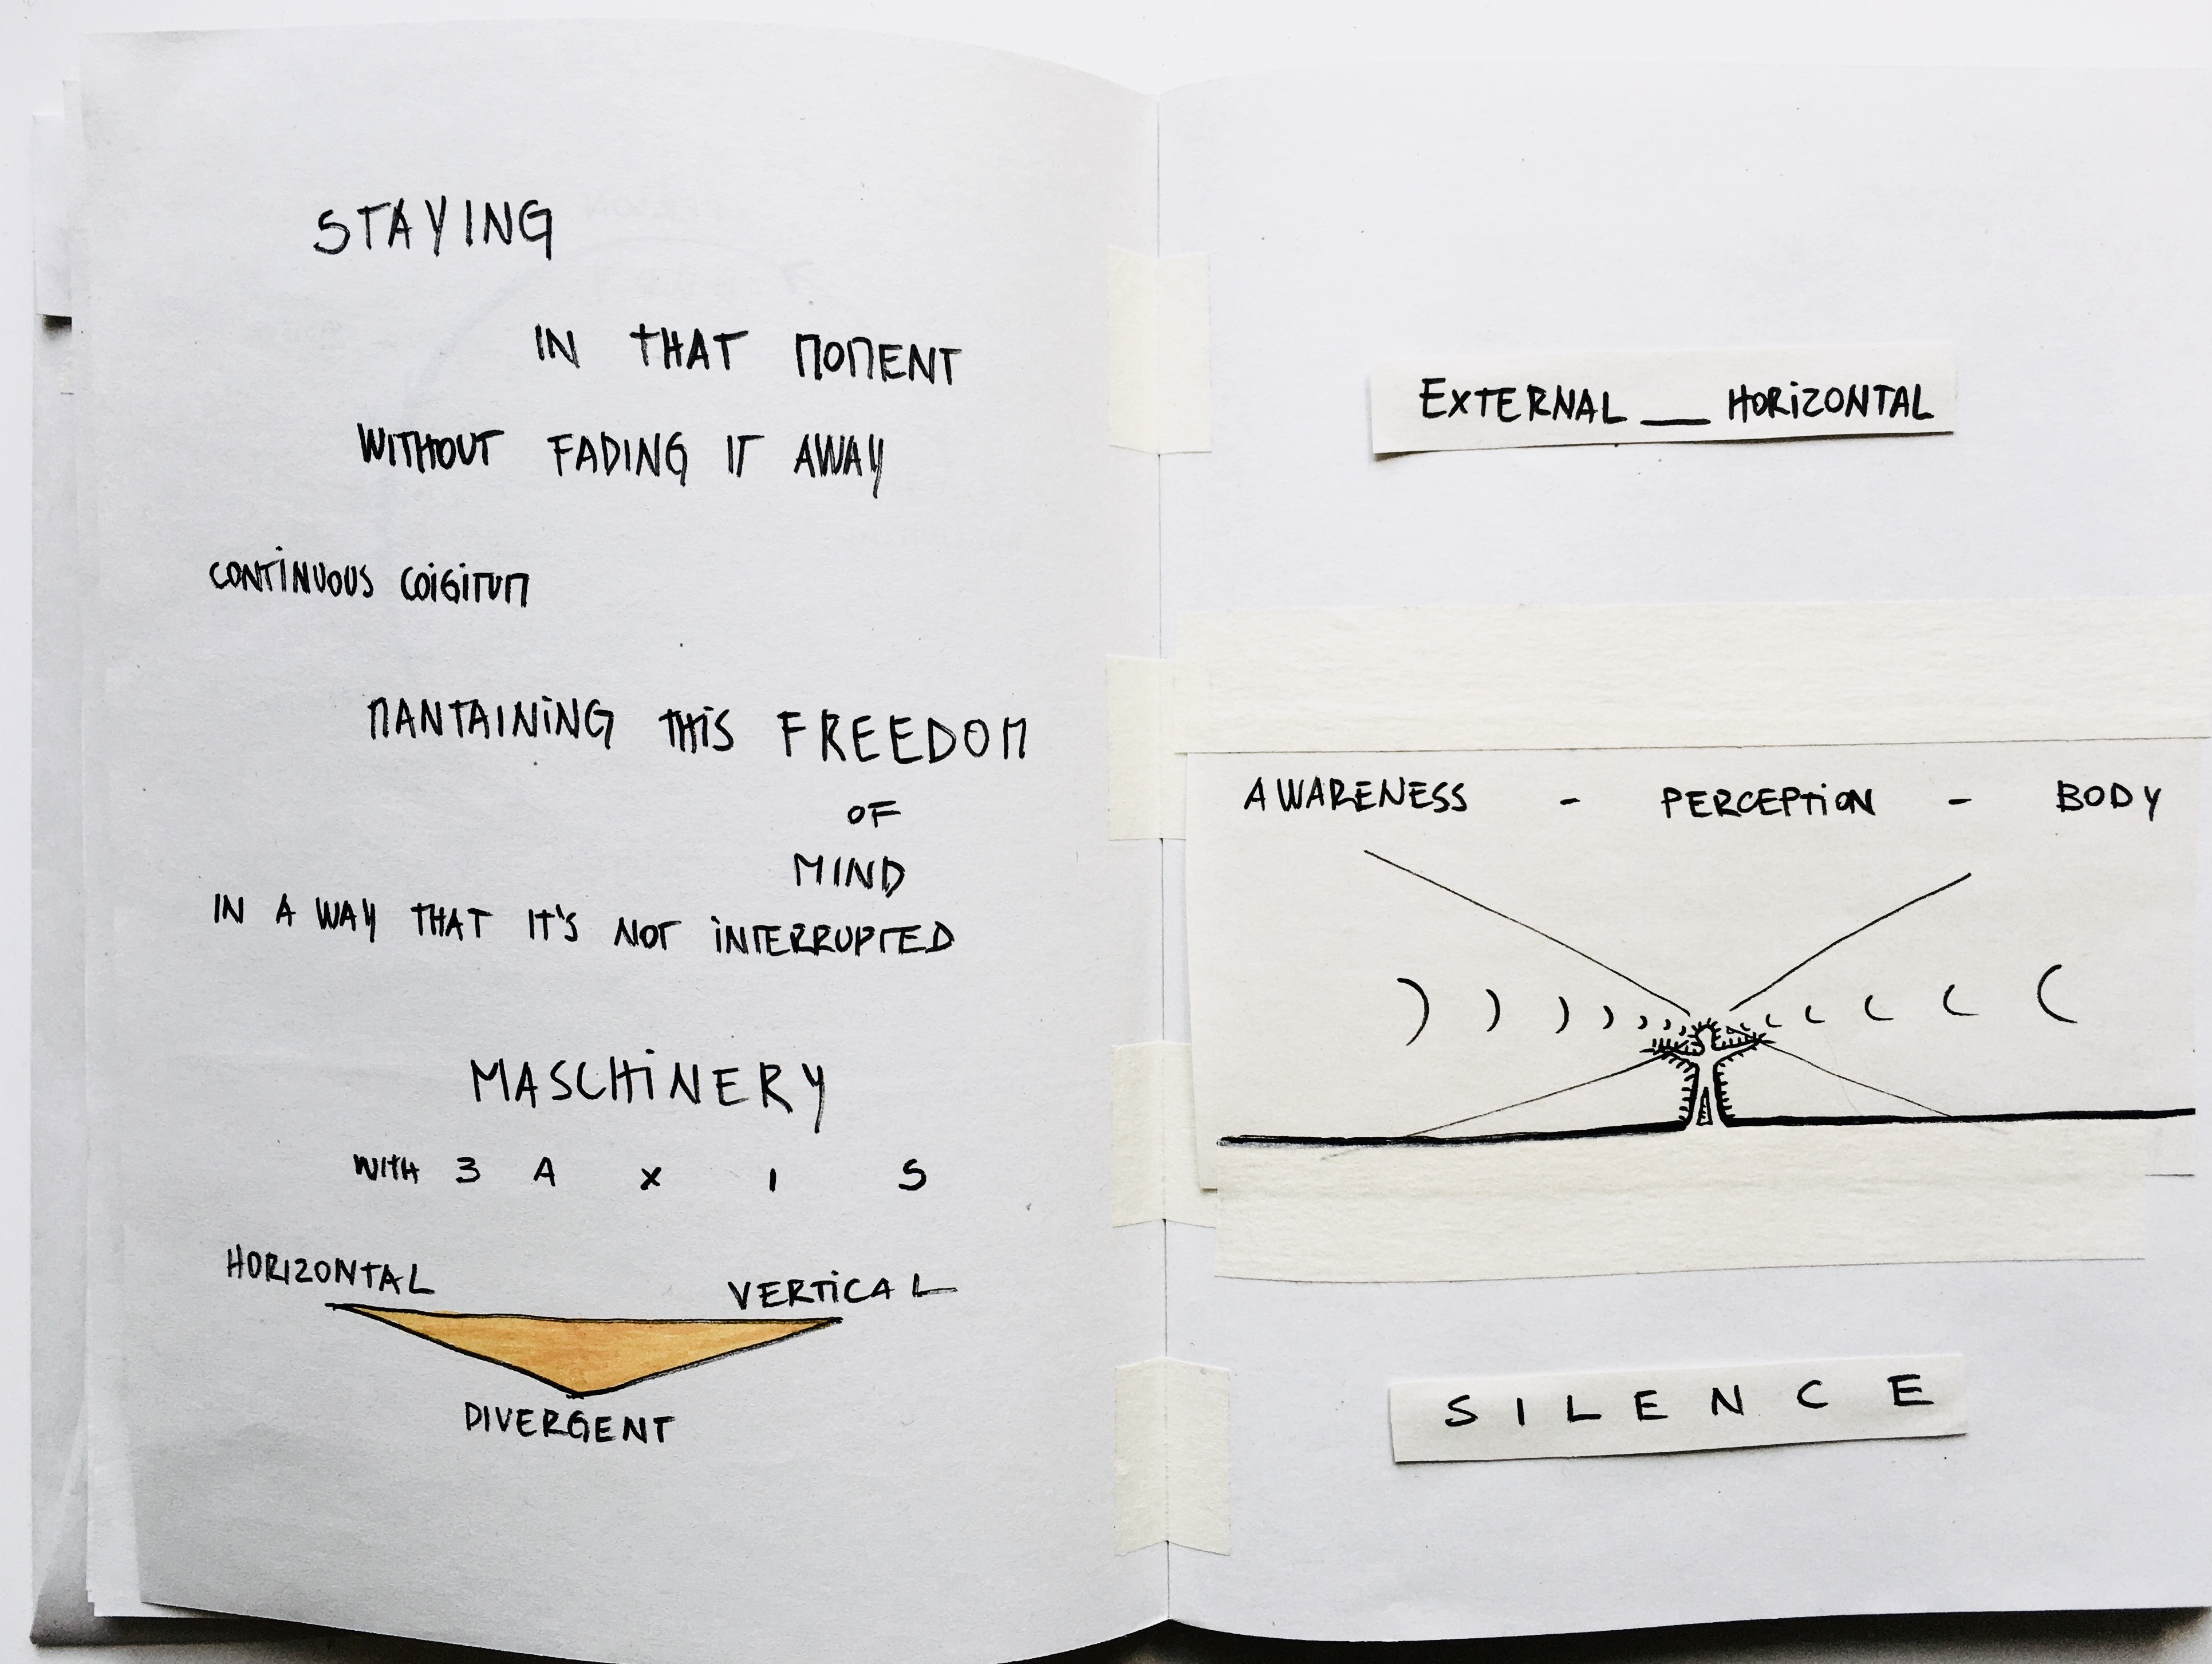 STAYING
IN THAT MOMENT
WITHOUT FADING IT AWAY
CONTINUOUS COIGITUM
MANTAINING THIS FREEDOM
OF
MIND
IN A WAY THAT IT'S NOT INTERRUPTED
MASCHINERY
WITH 3 A X I S
HORIZONTAL
VERTICAL
DIVERGENT
EXTERNAL __ HORIZONTAL
AWARENESS - PERCEPTION - BODY
S I L E N C E